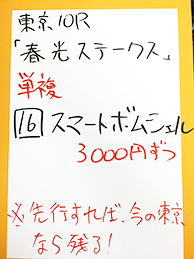 東京10R
「春光ステークス」
単複
16 スマートボムシェル
3000円ずつ
※先行すれば、今の東京
なら残る!